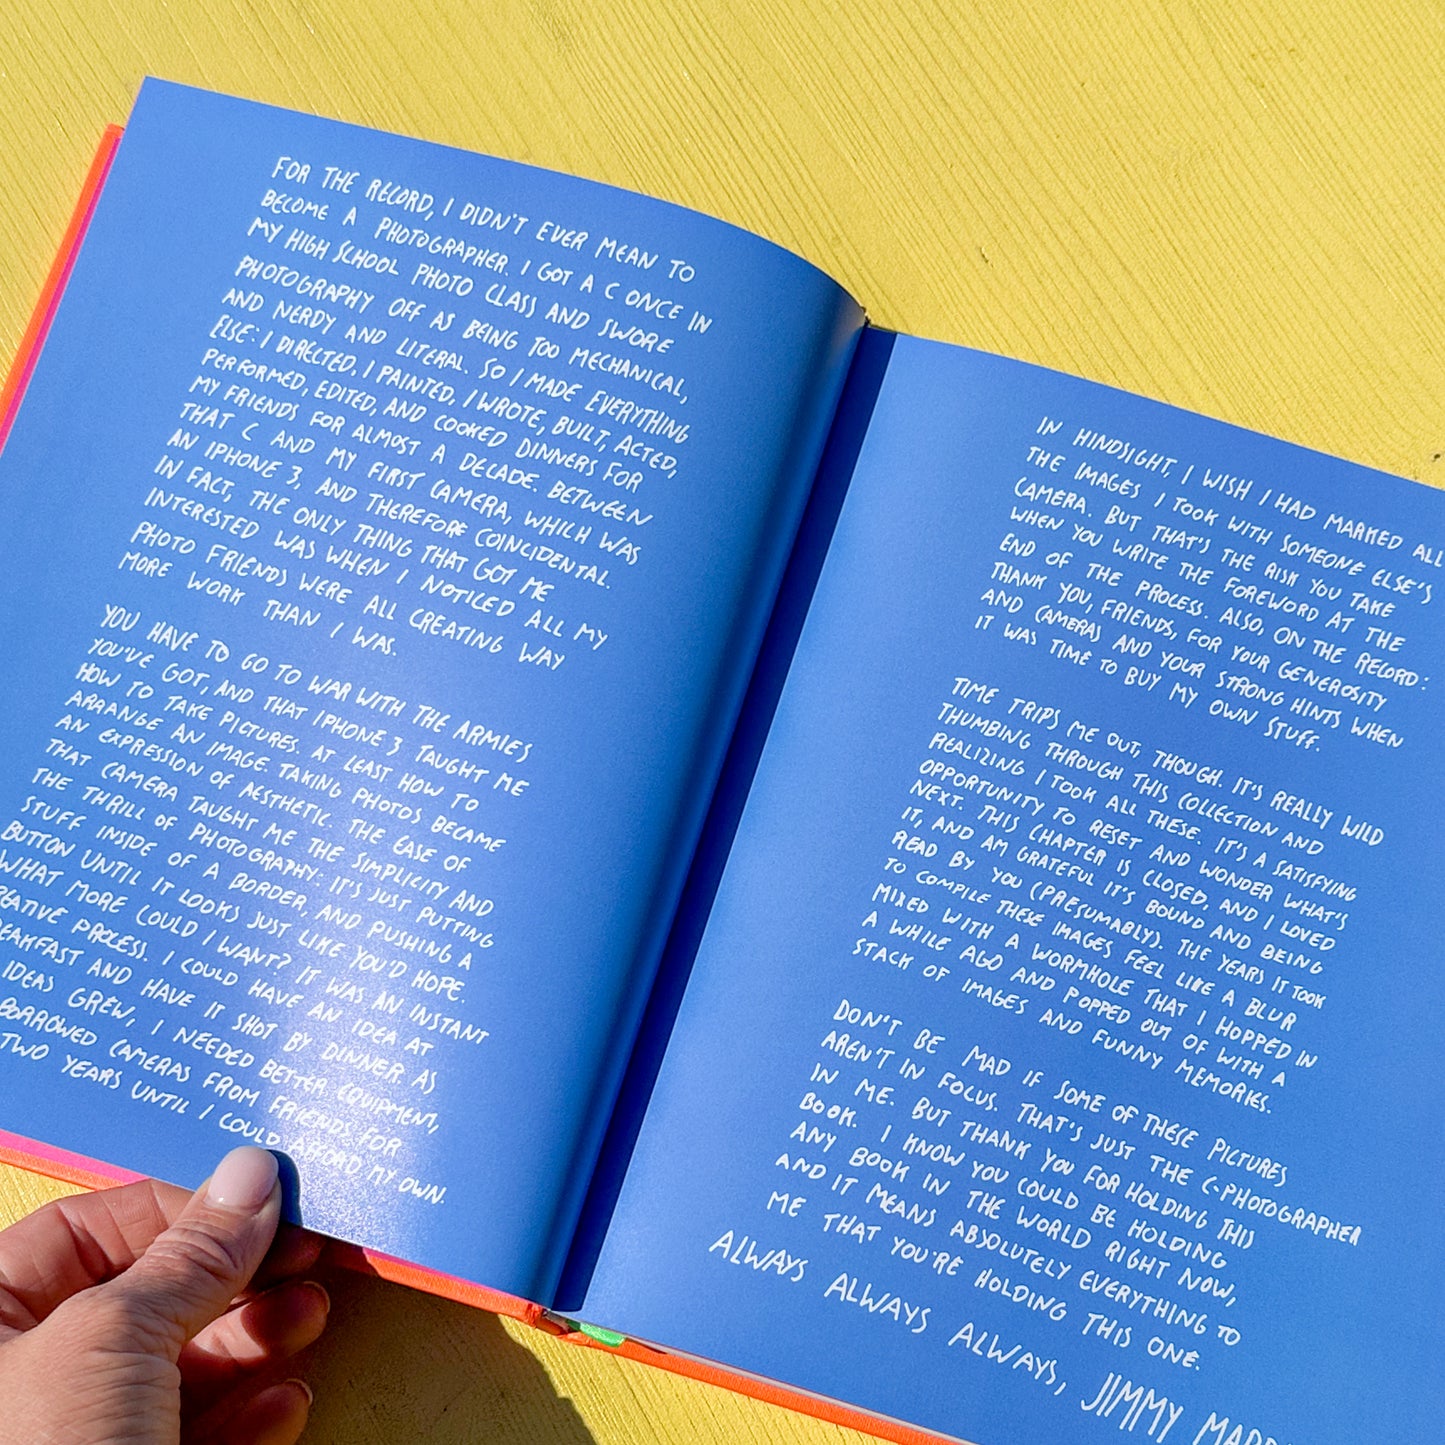 FOR THE RECORD, I DIDN'T EVER MEAN TO
BECOME A PHOTOGRAPHER. I GOT A C ONCE IN
MY HIGH SCHOOL PHOTO CLASS AND SWORE
PHOTOGRAPHY OFF AS BEING TOO MECHANICAL,
AND NERDY AND LITERAL. SO I MADE EVERYTHING
ELSE: I DIRECTED, I PAINTED, I WROTE, BUILT, ACTED,
PERFORMED, EDITED, AND COOKED DINNERS FOR
MY FRIENDS FOR ALMOST A DECADE. BETWEEN
THAT C AND MY FIRST CAMERA, WHICH WAS
AN IPHONE 3, AND THEREFORE COINCIDENTAL.
IN FACT, THE ONLY THING THAT GOT ME
INTERESTED WAS WHEN I NOTICED ALL MY
PHOTO FRIENDS WERE ALL CREATING WAY
MORE WORK THAN I WAS.
YOU HAVE TO GO TO WAR WITH THE ARMIES
YOU'VE GOT, AND THAT IPHONE 3 TAUGHT ME
HOW TO TAKE PICTURES. AT LEAST HOW TO
ARRANGE AN IMAGE. TAKING PHOTOS BECAME
AN EXPRESSION OF AESTHETIC. THE EASE OF
THAT CAMERA TAUGHT ME THE SIMPLICITY AND
THE THRILL OF PHOTOGRAPHY: IT'S JUST PUTTING
STUFF INSIDE OF A BORDER, AND PUSHING A
BUTTON UNTIL IT LOOKS JUST LIKE YOU'D HOPE.
WHAT MORE COULD I WANT? IT WAS AN INSTANT
REATIVE PROCESS. I COULD HAVE AN IDEA AT
EAKFAST AND HAVE IT SHOT BY DINNER. AS
IDEAS GREW, I NEEDED BETTER EQUIPMENT,
BORROWED CAMERAS FROM FRIENDS FOR
TWO YEARS UNTIL I COULD AFFORD MY OWN.
IN HINDSIGHT, I WISH I HAD MARKED ALL
THE IMAGES I TOOK WITH SOMEONE ELSE'S
CAMERA. BUT THAT'S THE RISK YOU TAKE
WHEN YOU WRITE THE FOREWORD AT THE
END OF THE PROCESS. ALSO, ON THE RECORD:
THANK YOU, FRIENDS, FOR YOUR GENEROSITY
AND CAMERAS AND YOUR STRONG HINTS WHEN
IT WAS TIME TO BUY MY OWN STUFF.
TIME TRIPS ME OUT, THOUGH. IT'S REALLY WILD
THUMBING THROUGH THIS COLLECTION AND
REALIZING I TOOK ALL THESE. IT'S A SATISFYING
OPPORTUNITY TO RESET AND WONDER WHAT'S
NEXT. THIS CHAPTER IS CLOSED, AND I LOVED
IT, AND AM GRATEFUL IT'S BOUND AND BEING
READ BY YOU (PRESUMABLY). THE YEARS IT TOOK
TO COMPILE THESE IMAGES FEEL LIKE A BLUR
MIXED WITH A WORMHOLE THAT I HOPPED IN
A WHILE AGO AND POPPED OUT OF WITH A
STACK OF IMAGES AND FUNNY MEMORIES.
DON'T BE MAD IF SOME OF THESE PICTURES
AREN'T IN FOCUS. THAT'S JUST THE C-PHOTOGRAPHER
IN ME. BUT THANK YOU FOR HOLDING THIS
BOOK. I KNOW YOU COULD BE HOLDING
ANY BOOK IN THE WORLD RIGHT NOW,
AND IT MEANS ABSOLUTELY EVERYTHING TO
ME THAT YOU'RE HOLDING THIS ONE.
ALWAYS ALWAYS ALWAYS, JIMMY MAR